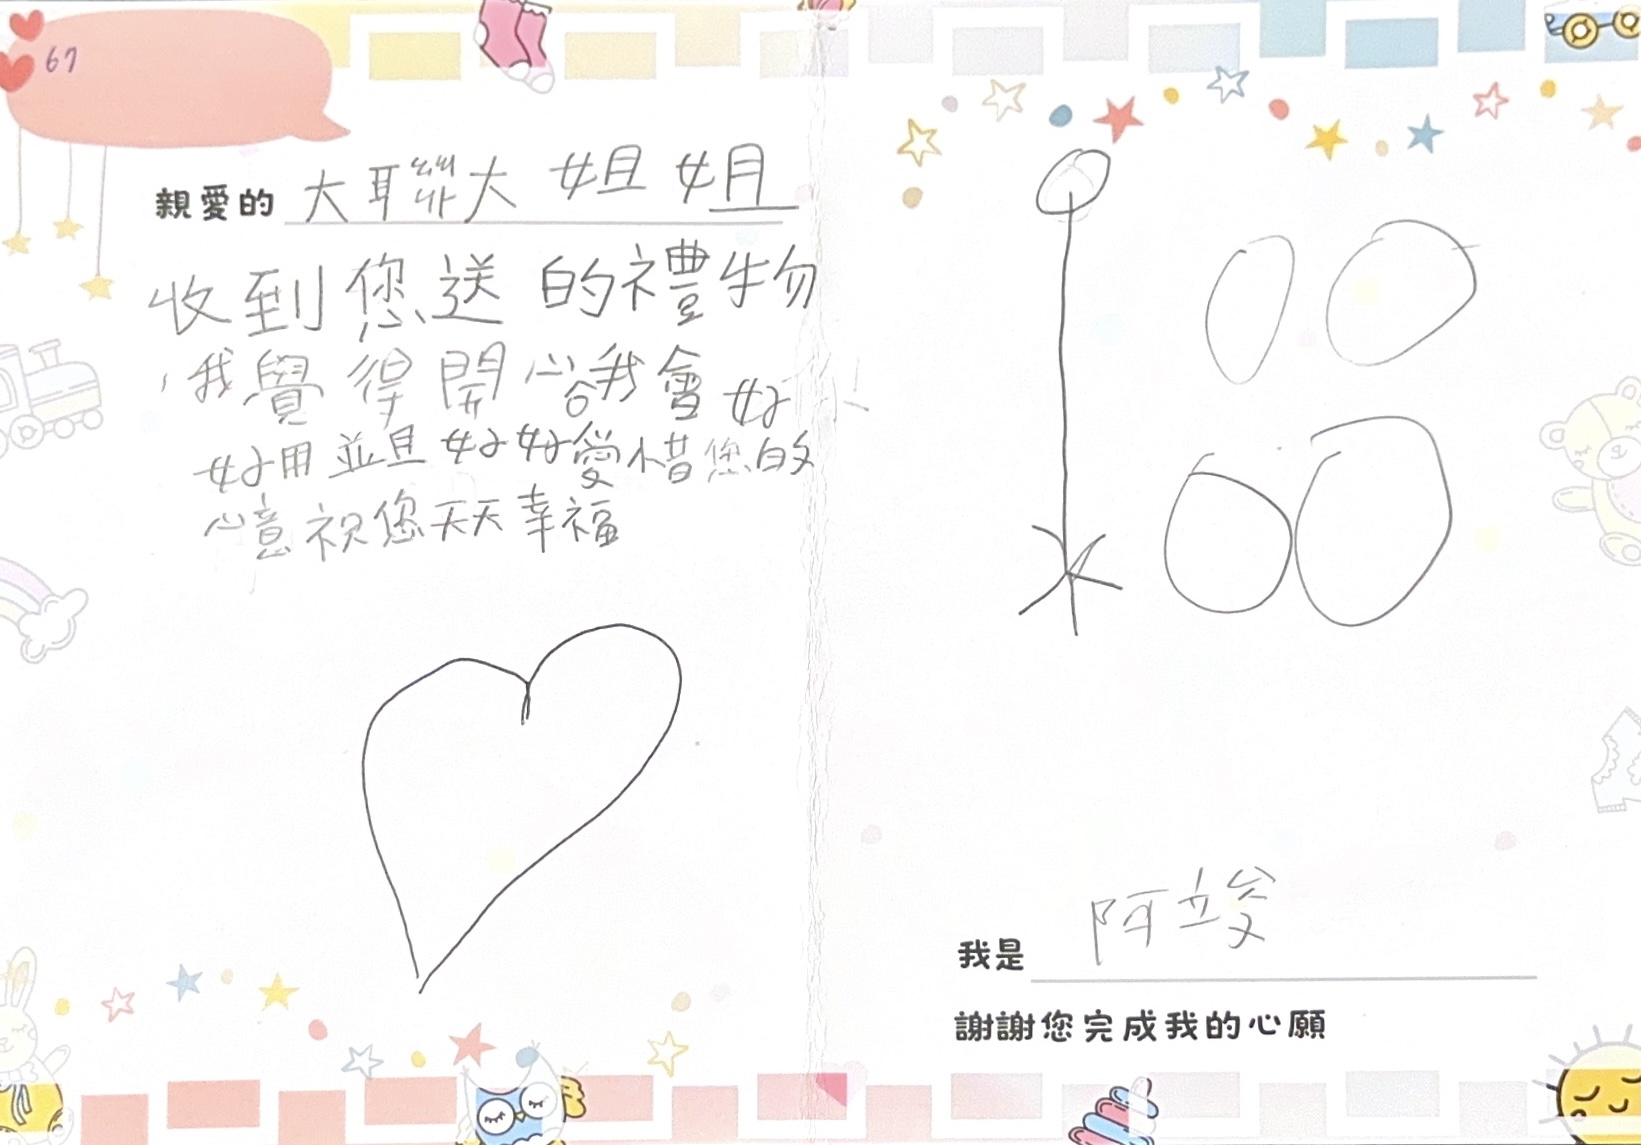 67
親愛的 大聯大 姐姐
收到您送的禮物
，我覺得開心。我會好
好用並且好好愛惜您的
心意祝您天天幸福
我是 阿竣
謝謝您完成我的心願